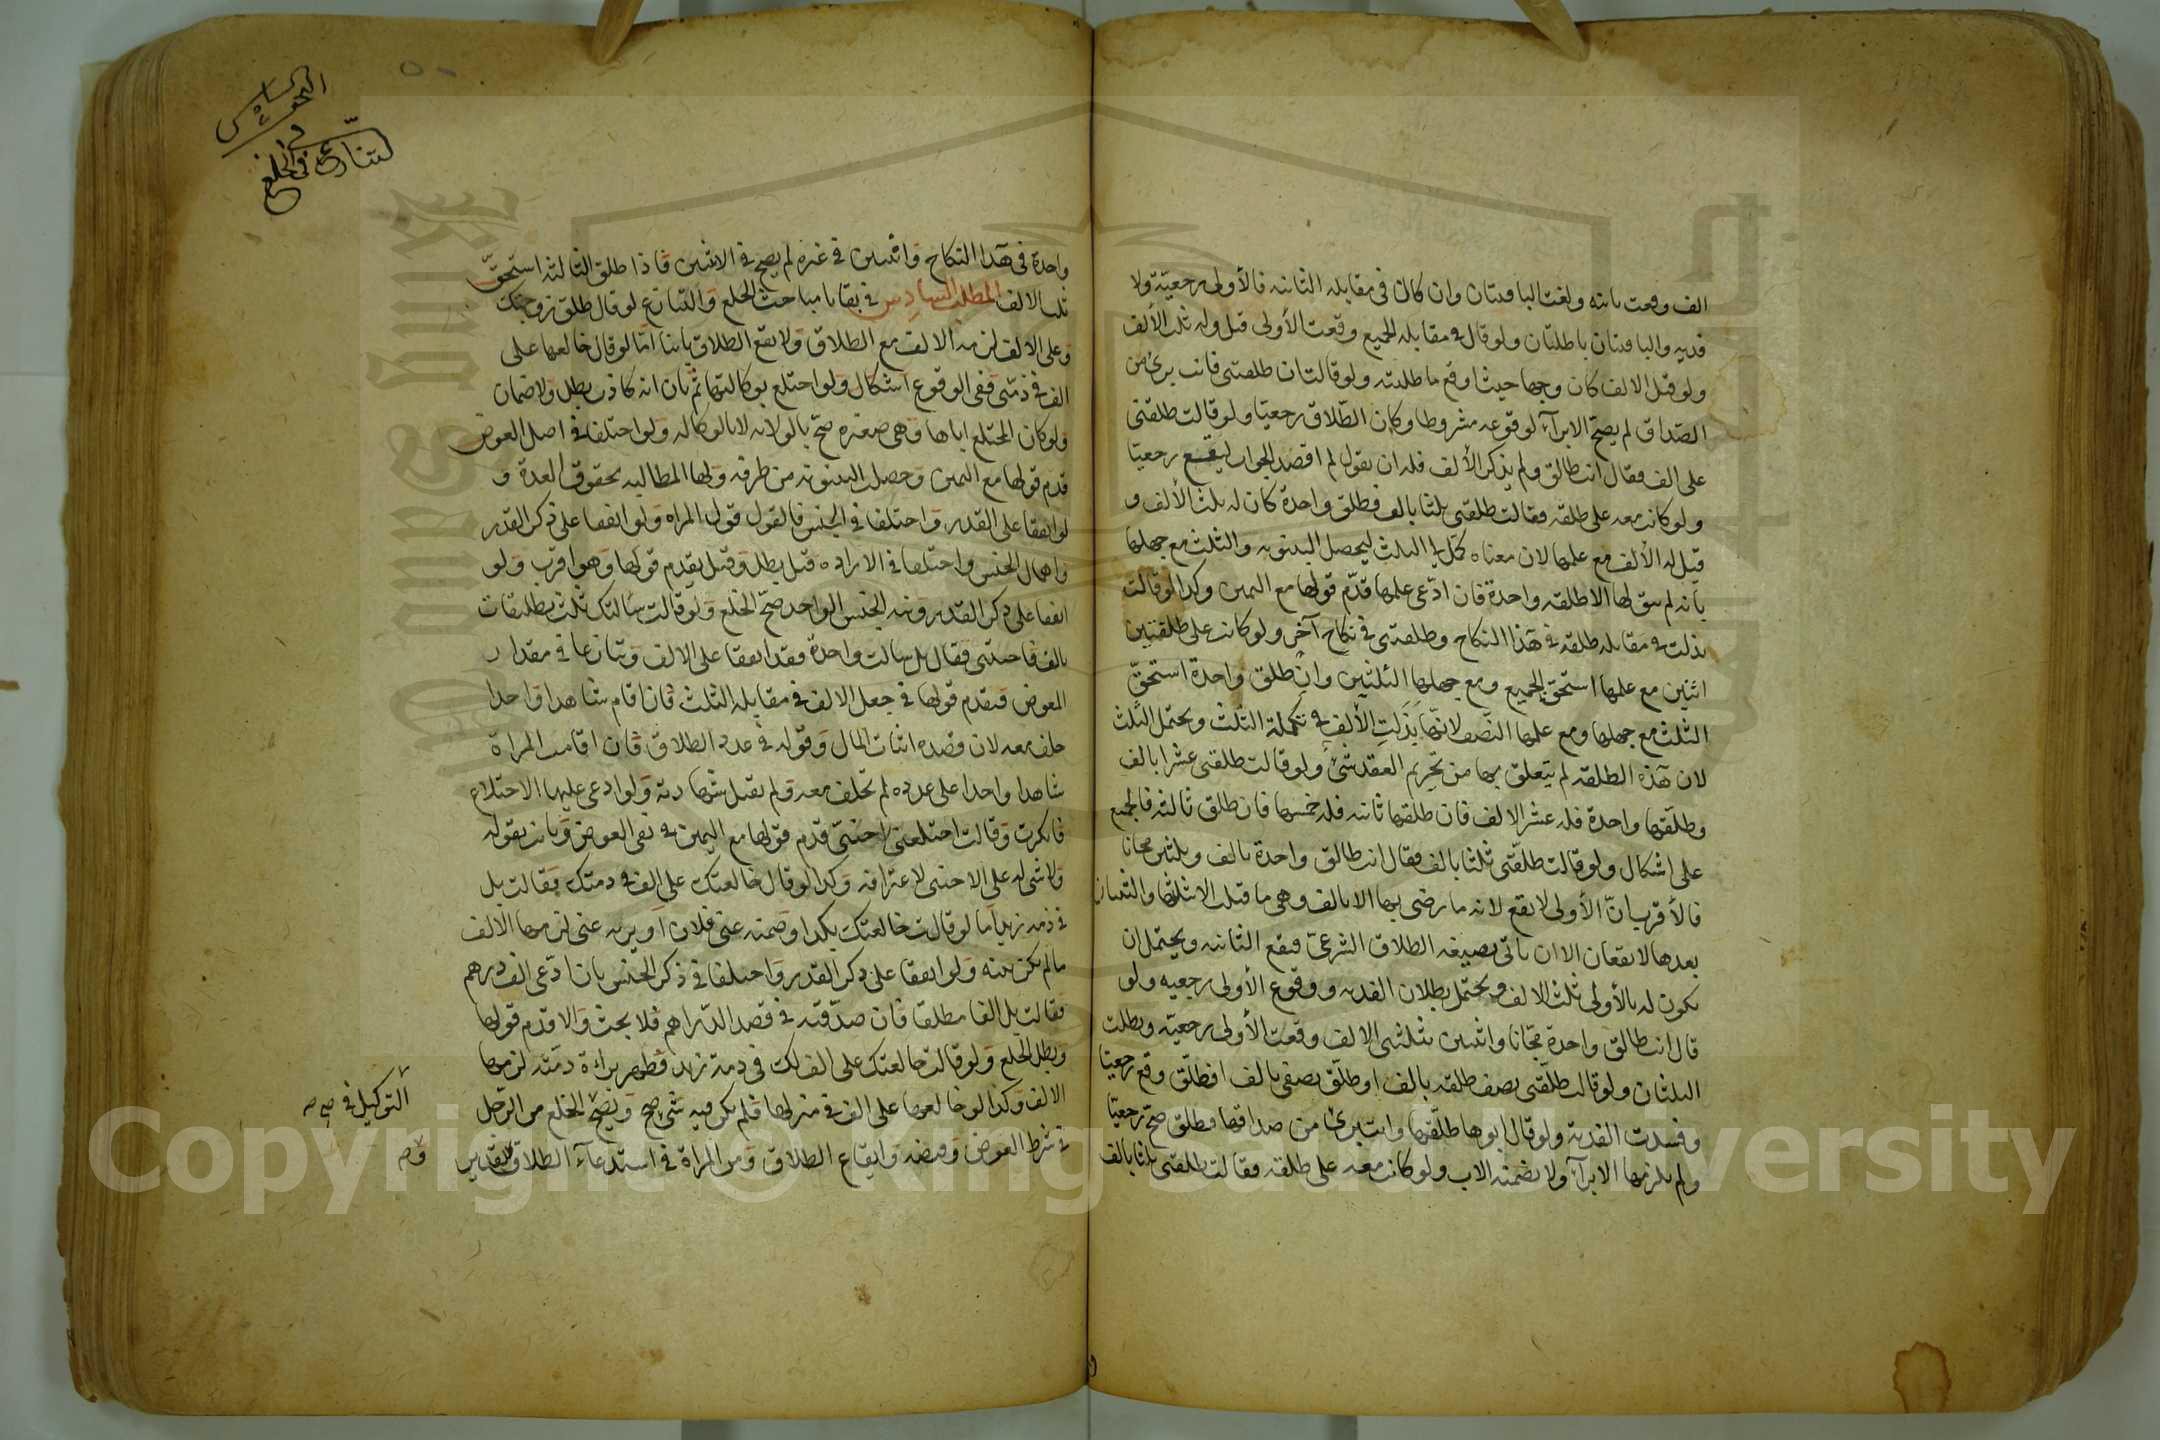 الف وقعت باينه ولغت الباقيتان وان كان في مقابلة الثانية فالأولى رجعيّة ولا
فدية والباقيتان باطلتان ولو قال في مقابلة الجميع وقعت الأولى قيل وله ثلث الألف
ولو قيل الالف كان وجها حيث اوقع ما طلبته ولو قالتان طلقتني فانت برئ من
الصّداق لم يصحّ الابرآء لوقوعه مشروطا وكان الطّلاق رجعيا ولو قالت طلقني
على الف فقال انت طالق ولم يذكر الألف فله ان يقول لم اقصد الجواب ليقع رجعيّا
ولو كانت معه على طلقة فقالت طلقني ثلثا بالف فطلق واحدة كان له ثلث الألف و
قيل له الألف مع علمها لان معناه كمّل لي الثلث ليحصل البينونة والثلث مع جهلها
بانه لم يبق لها الا طلقة واحدة فان ادّعى علمها قدّم قولها مع اليمين وكذا لو قالت
بذلت في مقابلة طلقة في هذا النكاح وطلقتين في نكاح آخر ولو كانت على طلقتين
اثنين مع علمها استحق الجميع ومع جهلها الثلثين وان طلق واحدة استحقّ
الثلث مع جهلها ومع علمها النّصف لانّها بذلت الألف في تكملة الثلث ويحتمل الثلث
لان هذه الطلقة لم يتعلق بها من تحريم العقد شئ ولو قالت طلقني عشرا بالف
وطلّقها واحدة فله عشر الالف فان طلقها ثانية فله خمسها فان طلق ثالثة فالجميع
على اشكال ولو قالت طلّقني ثلثا بالف فقال انت طالق واحدة بالف وثلثين مجانا
فالأقرب انّ الأولى لا يقع لانه ما رضى بها الا بالف وهي ما قبلت الا بثلثها والثنتان
بعدها لا يقعان الا ان ياتى بصيغة الطلاق الشرعىّ فيقع الثانية ويحتمل ان
يكون له بالأولى ثلث الالف ويحتمل بطلان الفدية ووقوع الأولى رجعية ولو
قال انت طالق واحدة مجّانا واثنين بثلثي الالف وقعت الأولى رجعيّة وبطلت
الثلثان ولو قالت طلّقني نصف طلقة بالف او طلّق نصفى بالف فطلّق وقع رجعيّا
وفسدت الفدية ولو قال ابوها طلّقها وانت برئ من صداقها فطلق صحّ رجعيّا
ولم يلزمها الابرآء ولا يضمنه الاب ولو كانت معه على طلقة فقالت طلقني ثلثا بالف
البحث السادس
في التنازع في الخلع
واحدة في هذا النكاح واثنين في غيره لم يصح في الاثنين فاذا طلق الثالثة استحقّ
ثلث الالف المطلب السادس في بقايا مباحث الخلع والتنازع لو قال طلق زوجتك
وعلى الالف لزمه الالف مع الطلاق ولا يقع الطلاق باينا امّا لو قال خالعها على
الف في ذمّتى ففى الوقوع اشكال ولو اختلع بوكالتها ثم بان انه كاذب بطل ولا ضمان
ولو كان المختلع اباها وهى صغيرة صحّ بالولاية لا بالوكالة ولو اختلفا في اصل العوض
قدم قولها مع اليمين وحصلت البينونة من طرفه ولها المطالبة بحقوق العدة و
لو اتفقا على القدر واختلفا في الجنس فالقول قول المراة ولو اتفقا على ذكر القدر
واهمال الجنس واختلفا في الارادة قيل يبطل وقيل يقدم قولها وهو اقرب ولو
اتفقا على ذكر القدر ونية الجنس الواحد صحّ الخلع ولو قالت سألتك ثلث تطليقات
بالف فاجبتني فقال بل سألت واحدة فقد اتفقا على الالف وتنازعا في مقدار
المعوض فيقدم قولها في جعل الالف في مقابلة الثلث فان اقام شاهدا واحدا
حلف معه لان قصده اثبات المال وقوله في عدد الطلاق فان اقامت المراة
شاهدا واحدا على عدده لم تحلف معه ولم يقبل شهادته ولو ادعى عليها الاختلاع
فانكرت وقالت اختلعني اجنبي قدم قولها مع اليمين في نفى العوض وبانت بقوله
ولا شئ له على الاجنبى لاعترافه وكذا لو قال خالعتك على الف في ذمتك فقالت بل
في ذمة زيد اما لو قالت خالعتك بكذا وضمنه عني فلان او يزنه عني لزمها الالف
ما لم يكن بينة ولو اتفقا على ذكر القدر واختلفا في ذكر الجنس بان ادّعى الف درهم
فقالت بل الفا مطلقا فان صدّقته في قصد الدّراهم فلا بحث والا قدم قولها
وبطل الخلع ولو قالت خالعتك على الف لك في ذمة زيد فظهر براءة ذمّته لزمها
الالف وكذا لو خالعها على الف في منزلها فلم يكن فيه شئ صح ويصحّ الخلع من الرّجل
التوكيل في
في شرط العوض وقبضه وايقاع الطلاق ومن المراة في استدعآء الطلاق وتقدير
Copyright © King Saud University